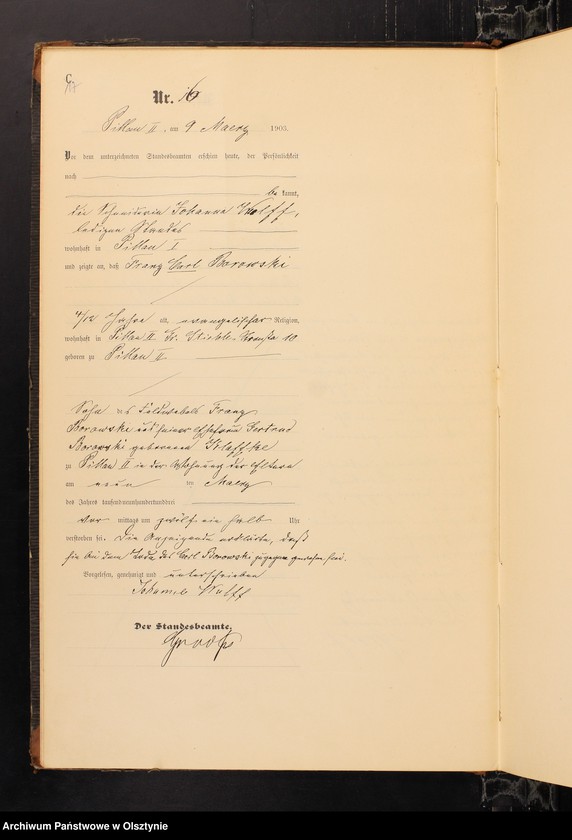 C
Nr. 16
Pillau II, am 9 Maerz 1903.
Vor dem unterzeichneten Standesbeamten erschien heute, der Persönlichkeit
nach
be kannt,
die Schneiderin Johanna Wolff,
ledigen Standes
wohnhaft in Pillau I
und zeigte an, daß Franz Carl Borowski
4/12 Jahre alt, evangelischer Religion,
wohnhaft in Pillau II Gr. Straße 10
geboren zu Pillau II
Sohn des Feldwebels Franz
Borowski und seiner Ehefrau Gertrud
Borowski geborenen
zu Pillau II in der Wohnung der Eltern
am neun ten Maerz
des Jahres tausendneunhundertunddrei
vor mittags um zwölf ein halb Uhr
verstorben sei. Die Anzeigende erklärte, daß
sie bei dem Tode des Carl Borowski zugegen gewesen sei.
Vorgelesen, genehmigt und unterschrieben
Johanna Wolff
Der Standesbeamte.
Archiwum Państwowe w Olsztynie